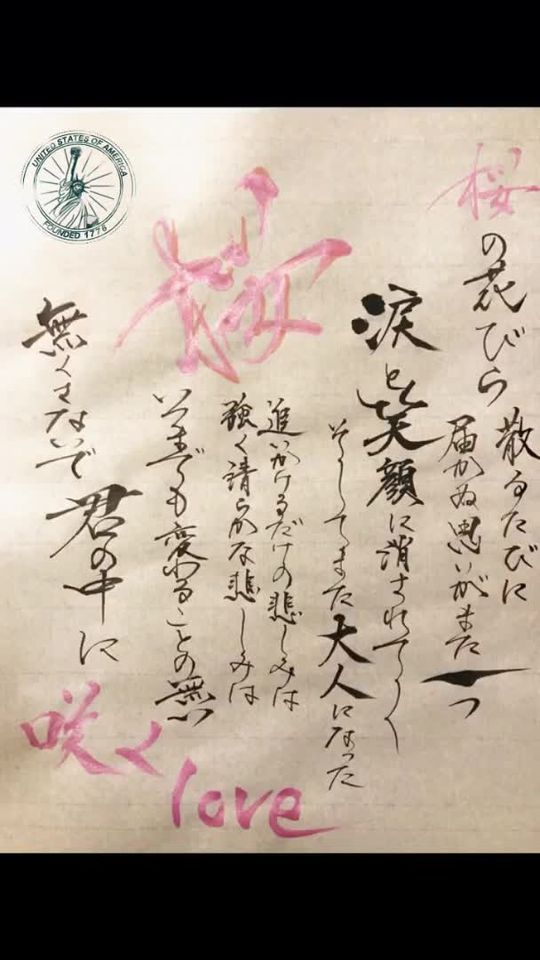 桜
の花びら
散るたびに
届かぬ思いがまた
一つ
涙と笑顔に消されてく
そしてまた大人になった
追いかけるだけの悲しみは
強く清らかな悲しみは
いつまでも変わることの無い
無くさないで君の中に
咲く
love
桜
UNITED STATES OF AMERICA
FOUNDED 1776